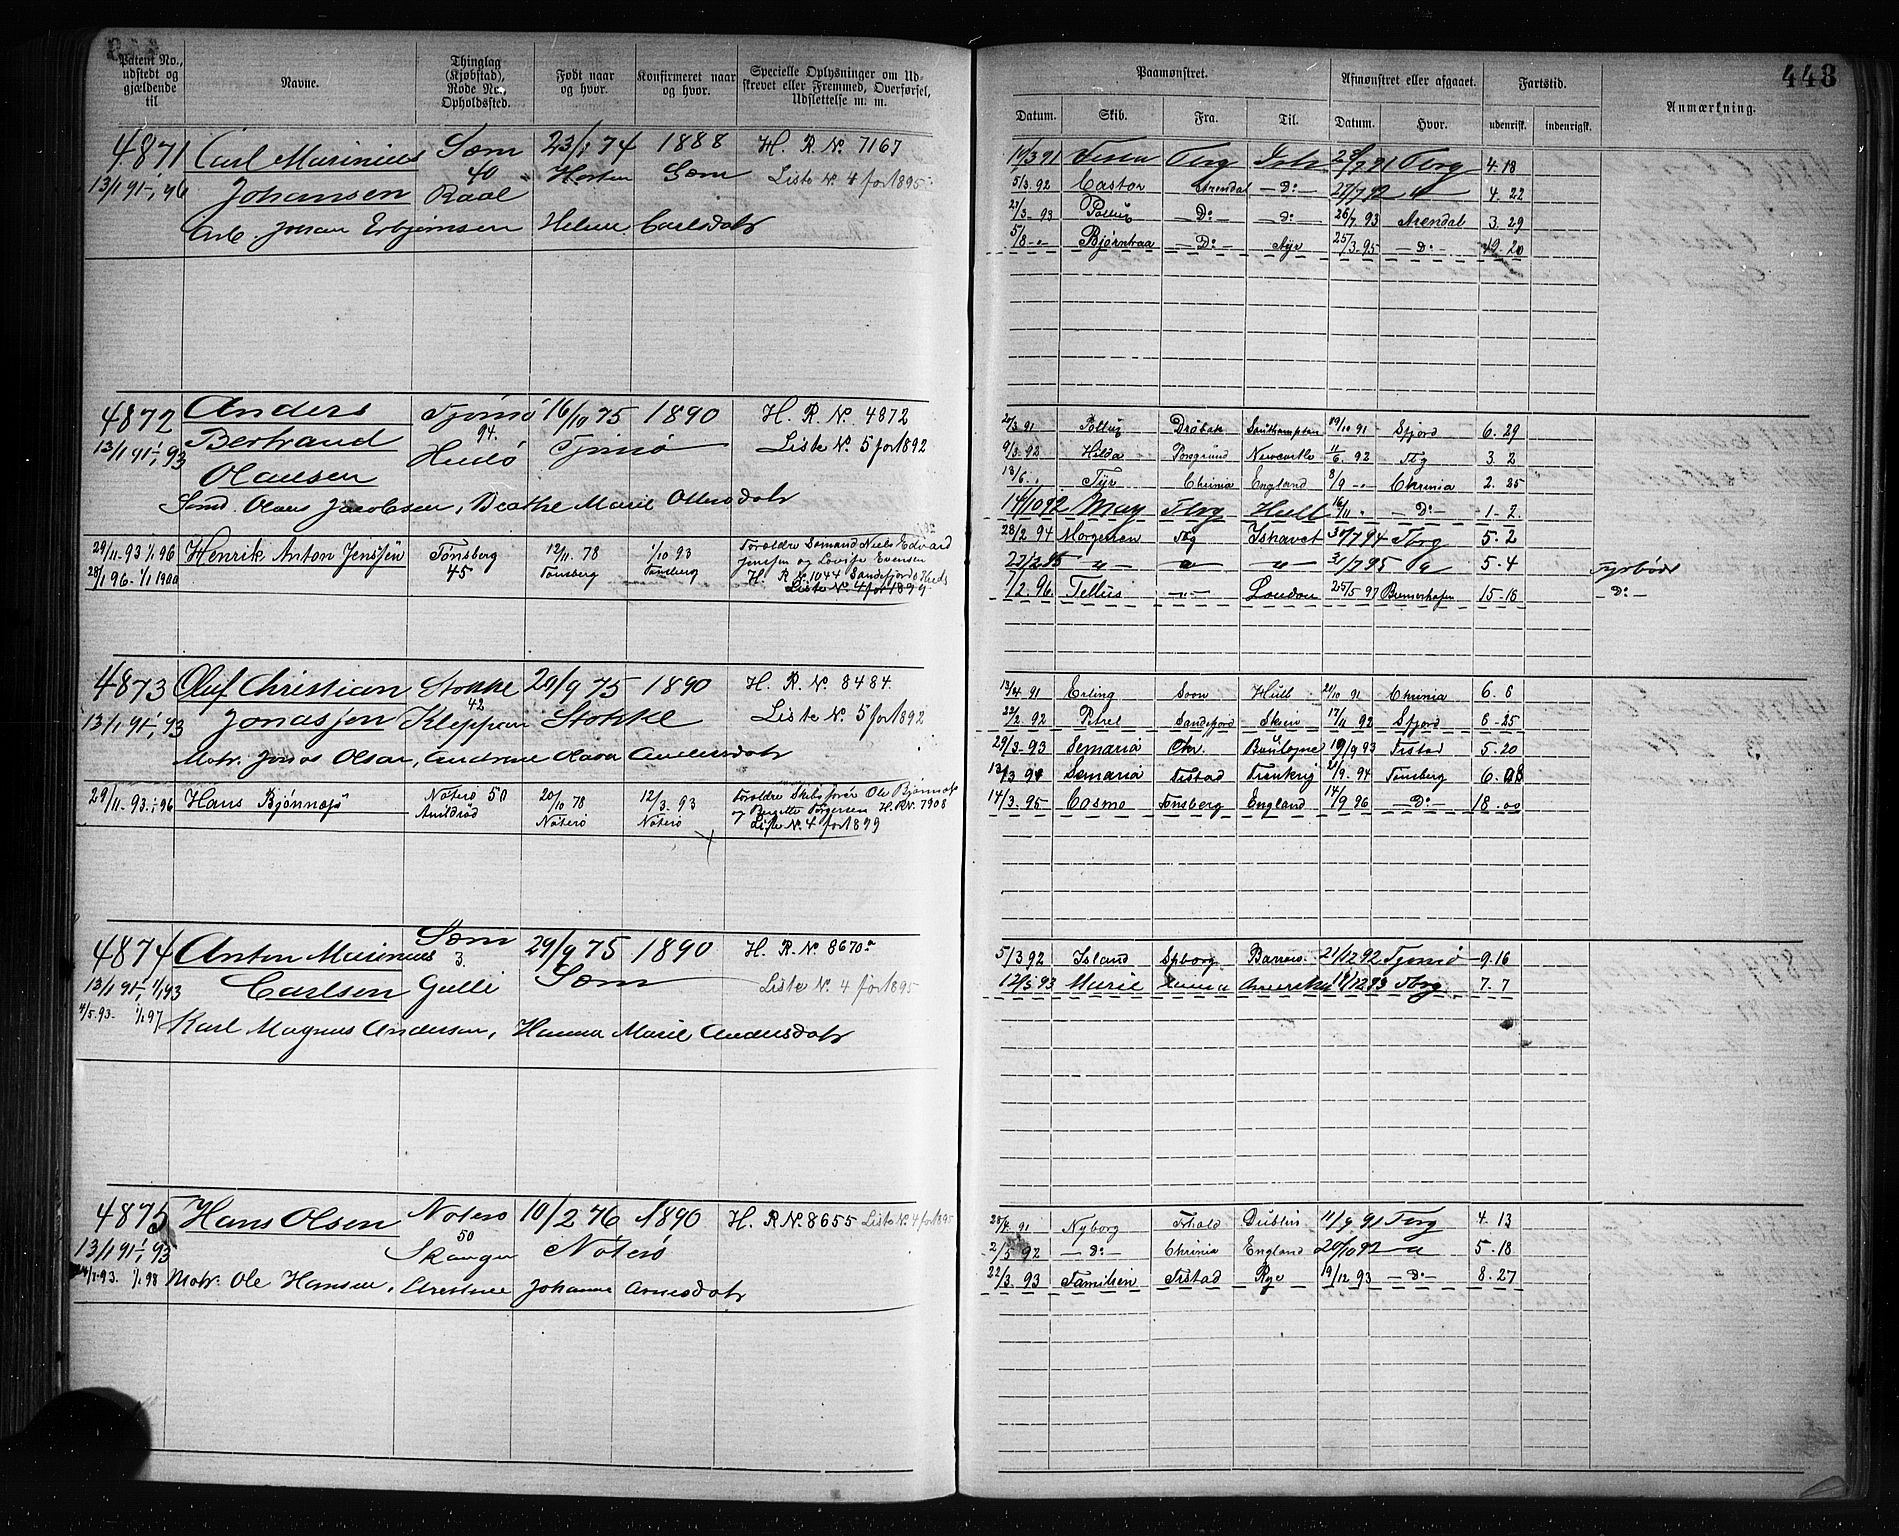 448
Patent No., udstedt og gjældende til
Navne.
Thinglag (Kjøbstad), Rode No., Opholdssted.
Født naar og hvor.
Konfirmeret naar og hvor.
Specielle Oplysninger om Udskrevet eller Fremmed, Overførsel, Udslettelse m. m.
4871 Carl Marinius Sæm 23/1 74 1888 H. R. № 7167
13/1 91-1/1 96 Johansen 40 Raal Horten Sæm Liste №. 4 for 1895
Arb. Johan Erbjørnsen Helene Carlsdatr
4872 Anders Tjømø 16/10 75 1890 H. R. №. 4872
13/1 91-1/1 93 Bertrand 94. Tjømø Liste №. 5 for 1892
Olausen Hudø
Sømd. Olaus Jacobsen, Beathe Marie Ottersdatr
29/11-93 1/1 96 Henrik Anton Jenssen Tønsberg 12/11. 78 1/10 93 Forældre Sømand Niels Edvard
28/1 96-1/1 1900 45 Tønsberg Tønsberg Jenssen og Lovise Evensen
H. R. № 1044 Sandefjords Kreds
Liste №. 4 for 1899
4873 Oluf Christian Stokke 20/9 75 1890 H. R. №. 8484.
13/1 91-1/1 93 Jonassen 42 Kleppan Stokke Liste №. 5 for 1892
Motr. Jonas Olsen, Andrine Olava Andersdatr
29/11. 93.-1/1 96 Hans Bjønnæs Nøterø 50 20/10 78 12/3. 93 Forældre Skibsfører Ole Bjønnæs
Arildrød Nøterø Nøterø og Birgitte Torgersen H. R. №. 7908
Liste №. 4 for 1899
4874 Anton Marinius Sæm 29/9 75 1890 H. R. №. 8670a
13/1 91-1/1 93 Carlsen 3 Gulli Sæm Liste №. 4 for 1895
4/5. 93. 1/1 97 Karl Magnus Andersen, Hanna Marie Andersdatr
4875 Hans Olsen Nøterø 10/2 76 1890 H. R. №. 8655 Liste №. 4 for 1895
13/1 91-1/1 93 50 Skanger Nøterø
93. 1/1 98 Motr. Ole Hansen, Johanne Arnesdatr
Paamønstret.
Afmønstret eller afgaaet.
Fartstid.
Anmærkning.
Datum. Skib. Fra. Til. Datum. Hvor. udenrigsk. indenrigsk.
Tbrg 7 91 Tbrg 4. 18
5/3. 92 Castor Arendal -D:- 27/7 92 " 4. 22
22/3. 93 Pollux -D:- -D:- 26/7 93 Arendal 3. 29
5/8 -"- Bjørntraa -D:- Nye 25/3. 95 -D:- 19. 20
20/3. 91 Pollux Drøbak Southampton 19/10 91 Sfjord 6. 29
9/3. 92 Hilda Porsgrund Newcastle 11/6. 92 Tbg 3. 2
13/6. " Tyr Chrinia England 8/9 -"- Chrinia 2. 25
14/10 92 May Tbrg Hull 16/11 " -D:- 1-2.
28/2 94 Morgenen Tbg Ishavet 30/7 94 Tbrg 5. 2
22/2 95 -"- -"- -"- 31/7 95 " 5. 4 Fyrbøder
7/2. 96. Tellus -"- London 25/5 97 Bremerhafen 15-18 -D:-
13/4 91 Erling Soon Hull 21/10 91 Chrinia 6. 6
22/2. 92 Petrel Sandefjord Skien 17/11 92 Sfjord 6-25
29/3. 93 Semaria Chr. Boulogne 19/9 93 Fstad 5. 20
13/3 94 Semaria Fstad 21/9. 94 Tønsberg 6. 08
14/3. 95 Cosmo Tønsberg England 14/9 96 -D:- 18. 00
5/3 92 Island Spborg 21/12 92 Tjømø 9. 16
12/3 93 Marie Amerika 19/12 93 Tbrg 7. 7
91 Nyborg Dublin 11/9 91 Tbrg 4. 13
2/5 92 -D:- Chrinia England 20/10 92 " 5. 18
22/3. 93 Familien Fstad Rye 19/12 93 -D:- 8. 27